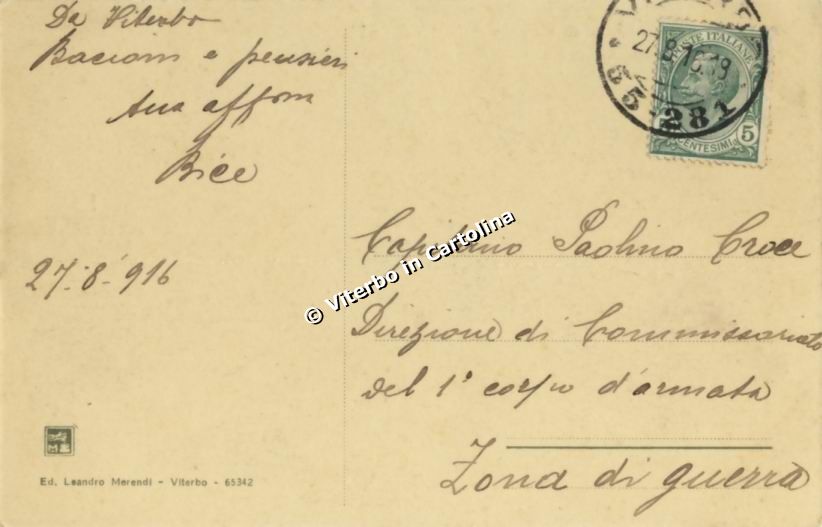 Da Viterbo
Bacioni e pensieri
tua affma
Bice
27-8-916
Ed. Leandro Merendi - Viterbo - 65342
27.8.16.19
55-281
POSTE ITALIANE
5
CENTESIMI
Capitano Paolino Croce
Direzione di Commissariato
del 1° corpo d'armata
Zona di guerra
© Viterbo in Cartolina